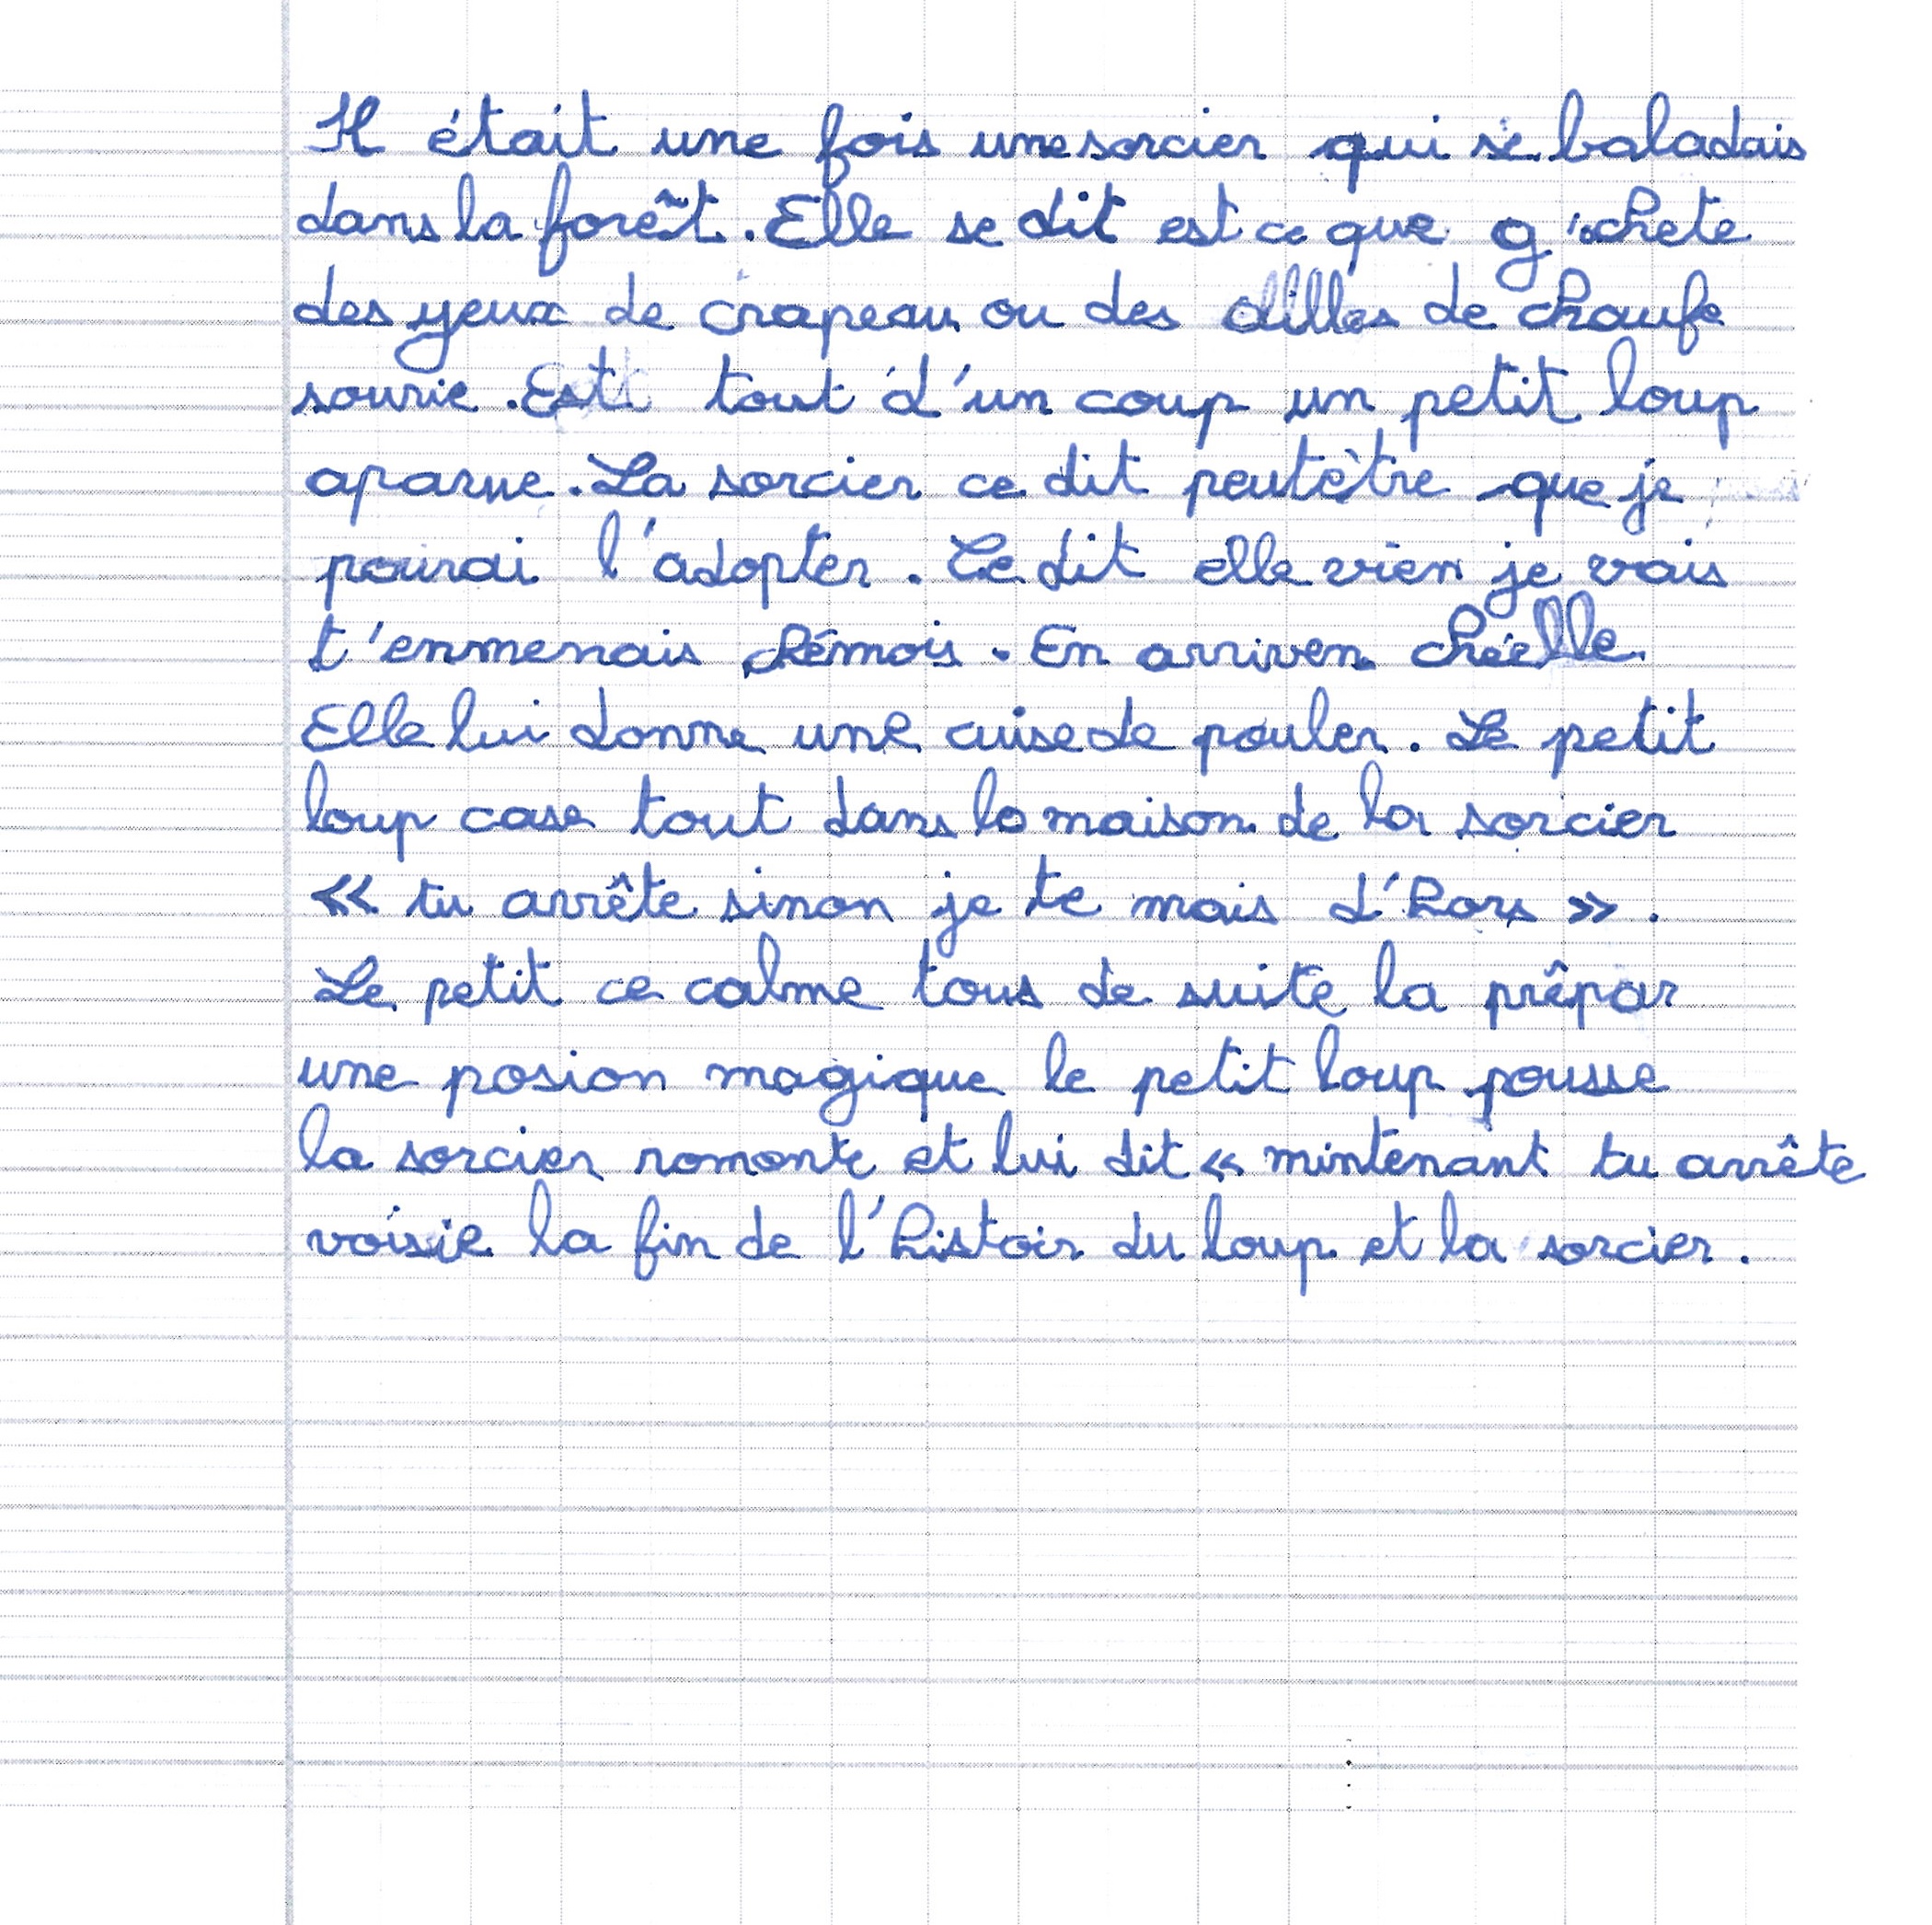 Il était une fois une sorcier qui se baladais
dans la forêt. Elle se dit est ce que g'achete
des yeux de crapeau ou des ailles de chaufe
sourie. Est tout d'un coup un petit loup
aparue. La sorcier ce dit peutètre que je
pourai l'adopter. Ce dit elle vien je vais
t'enmenais chémois. En arriven chéelle.
Elle lui donne une cuise de pouler. Le petit
loup case tout dans la maison de la sorcier
« tu arrête sinon je te mais d'hors ».
Le petit ce calme tous de suite la prêpar
une posion magique le petit loup pousse
la sorcier romonte et lui dit « mintenant tu arrête
voisie la fin de l'histoir du loup et la sorcier.